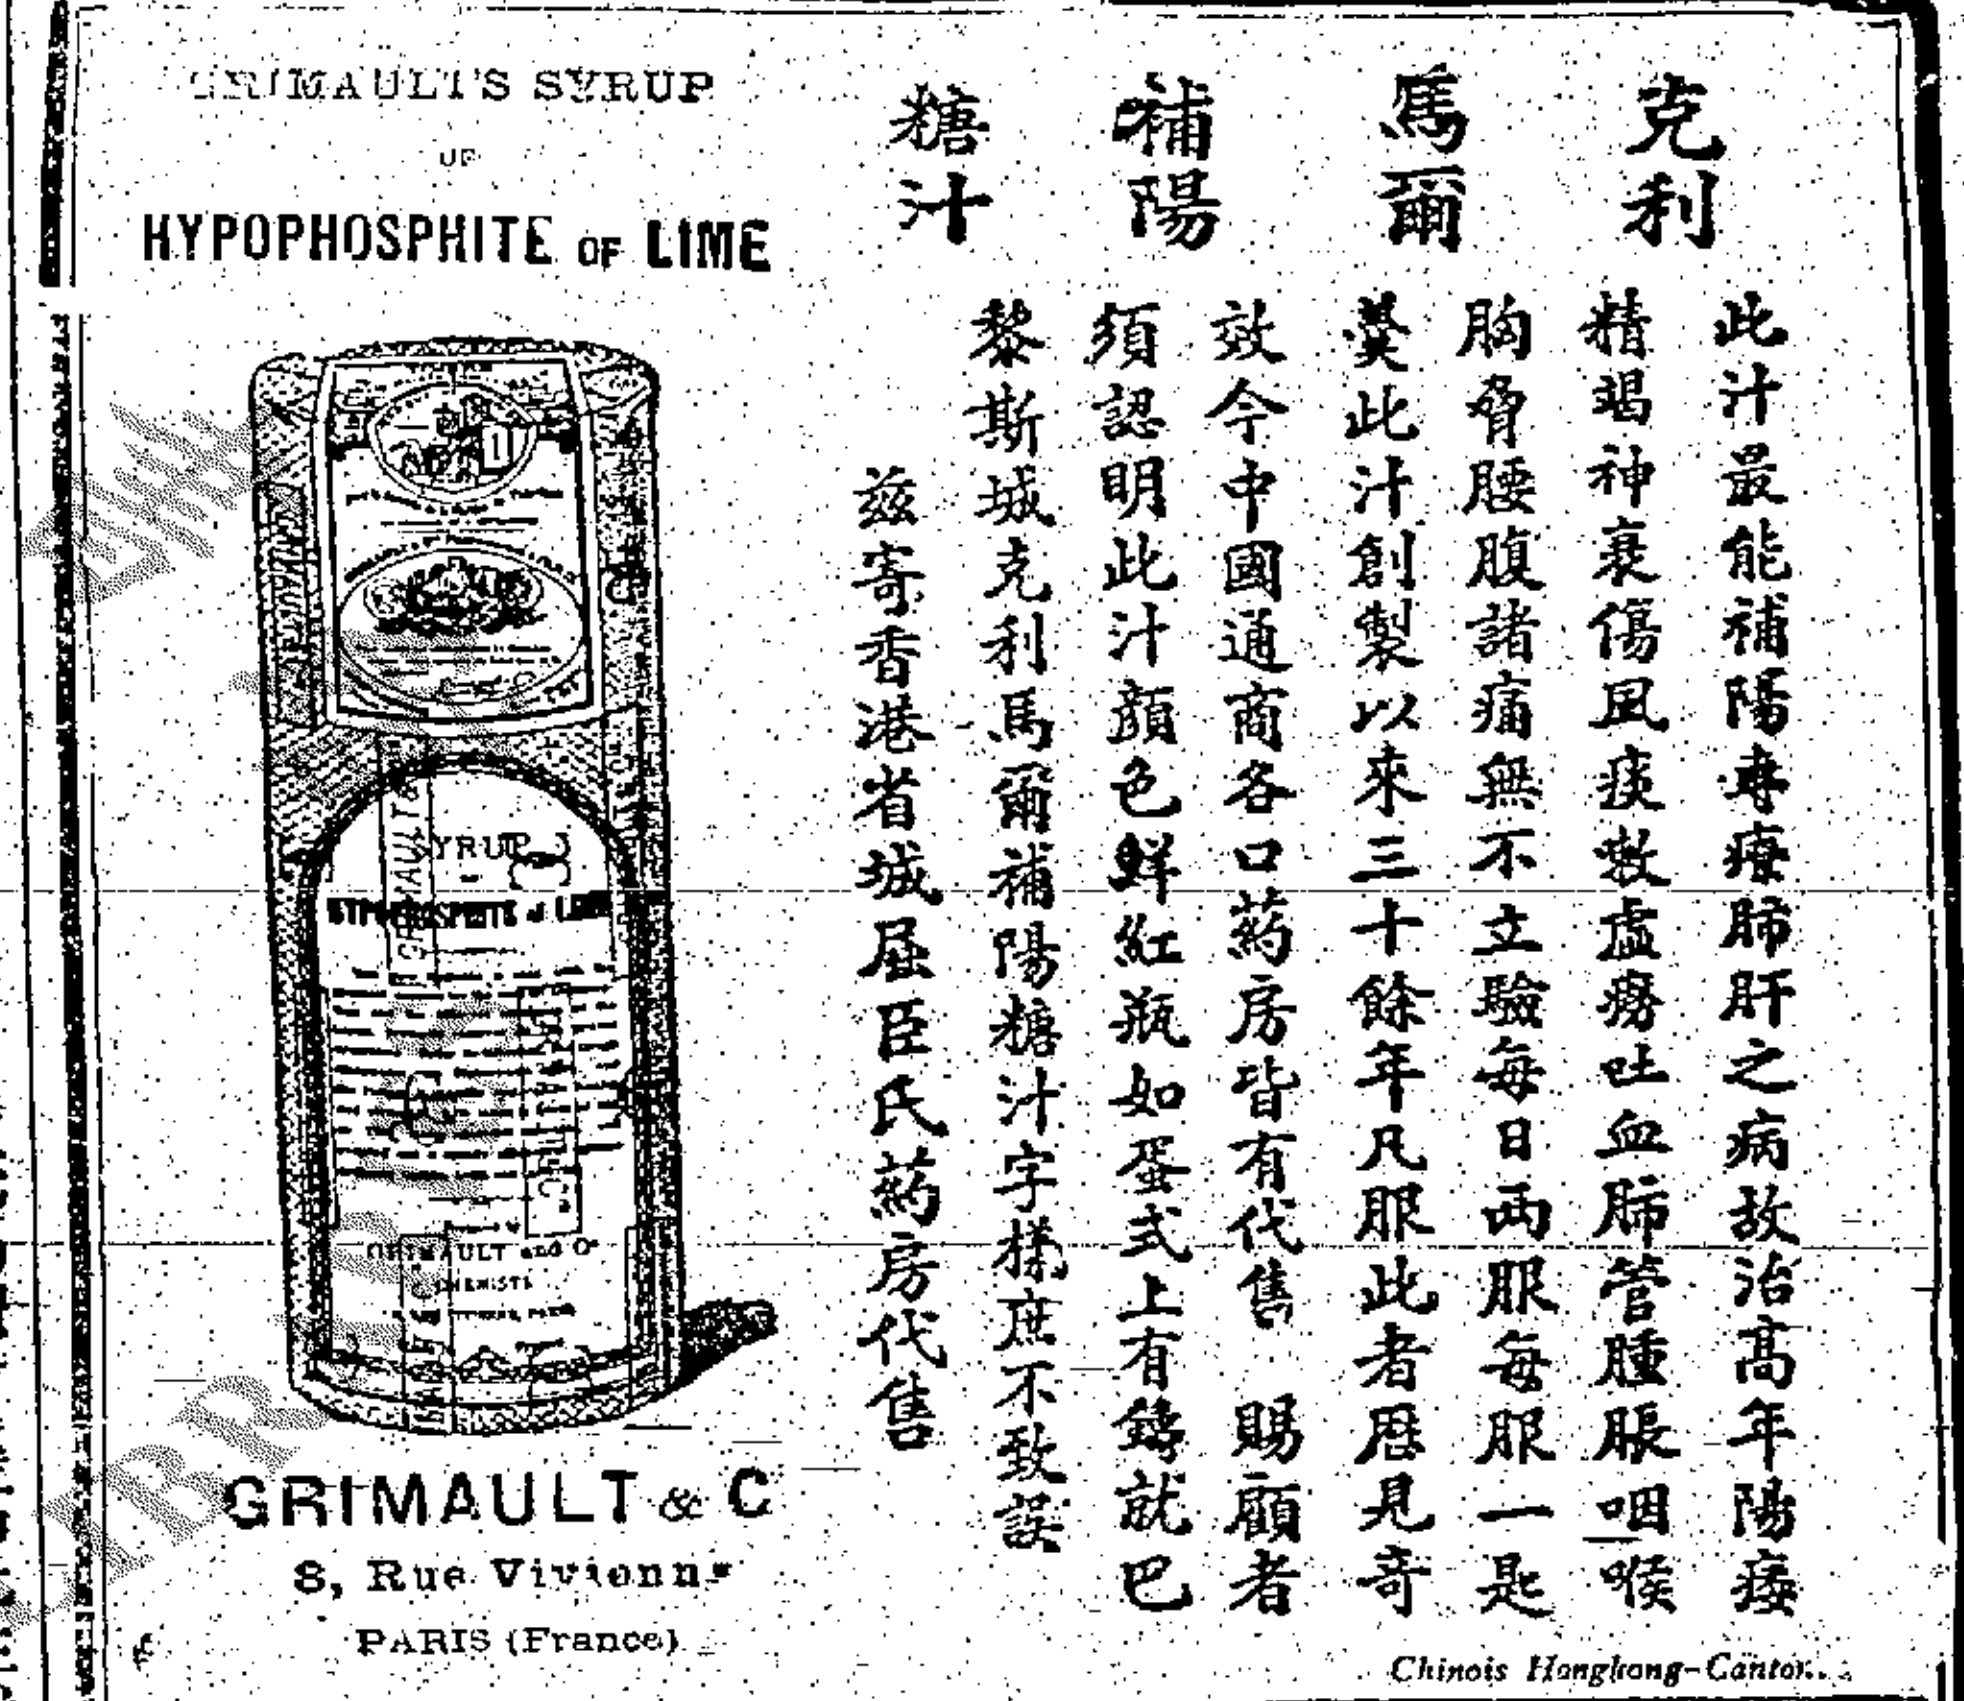 GRIMAULT'S SYRUP
OF
HYPOPHOSPHITE OF LIME
SYRUP
HYPOPHOSPHITE of LIME
GRIMAULT and Co
CHEMISTS
GRIMAULT & C
8, Rue Vivienne
PARIS (France)
克利
馬爾
補陽
糖汁
此汁最能補陽專療肺肝之病故治高年陽痿
精竭神衰傷風痰嗽虛癆吐血肺管腫脹咽喉
胸脅腰腹諸痛無不立驗每日兩服每服一匙
羹此汁創製以來三十餘年凡服此者歷見奇
效今中國通商各口葯房皆有代售 賜顧者
須認明此汁顏色鮮紅瓶如蛋式上有鑄就巴
黎斯城克利馬爾補陽糖汁字樣庶不致誤
茲寄香港省城屈臣氏葯房代售
Chinois Hongkong-Canton.